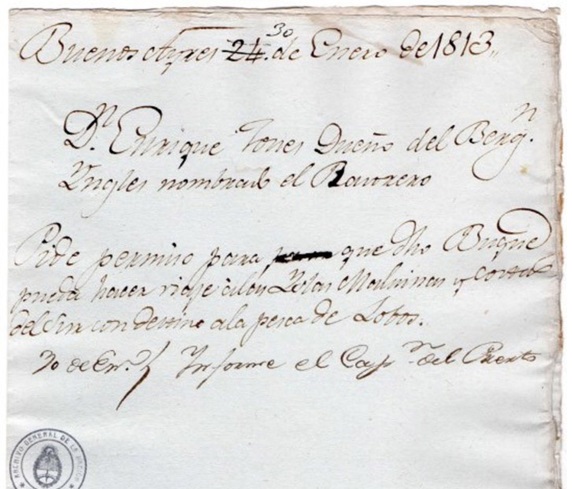 Buenos Ayres 24 30 de Enero de 1813,,
Dn. Enrique Jones Dueño del Bergn.
Yngles nombrado el
Pide permiso para para que dho Buque
pueda hacer viaje a las Yslas Malvinas y costas
del Sur con destino a la pesca de Lobos.
30 de Enº. Ynforme el Capn. del Puerto
ARCHIVO GENERAL DE LA